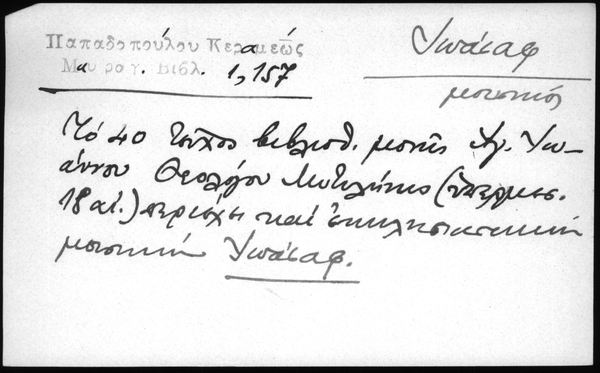 Παπαδοπούλου Κεραμεῶς
Μαυρογ. Βιβλ. 1,157
Ἰωάσαφ
μουσικός
Τό 40 τεῦχος βιβλιοθ. μονῆς Ἁγ. Ἰω-
άννου Θεολόγου Μυτιλήνης (
18 αἰ.) περιέχει καί ἐκκλησιαστικήν
μουσικήν Ἰωάσαφ.